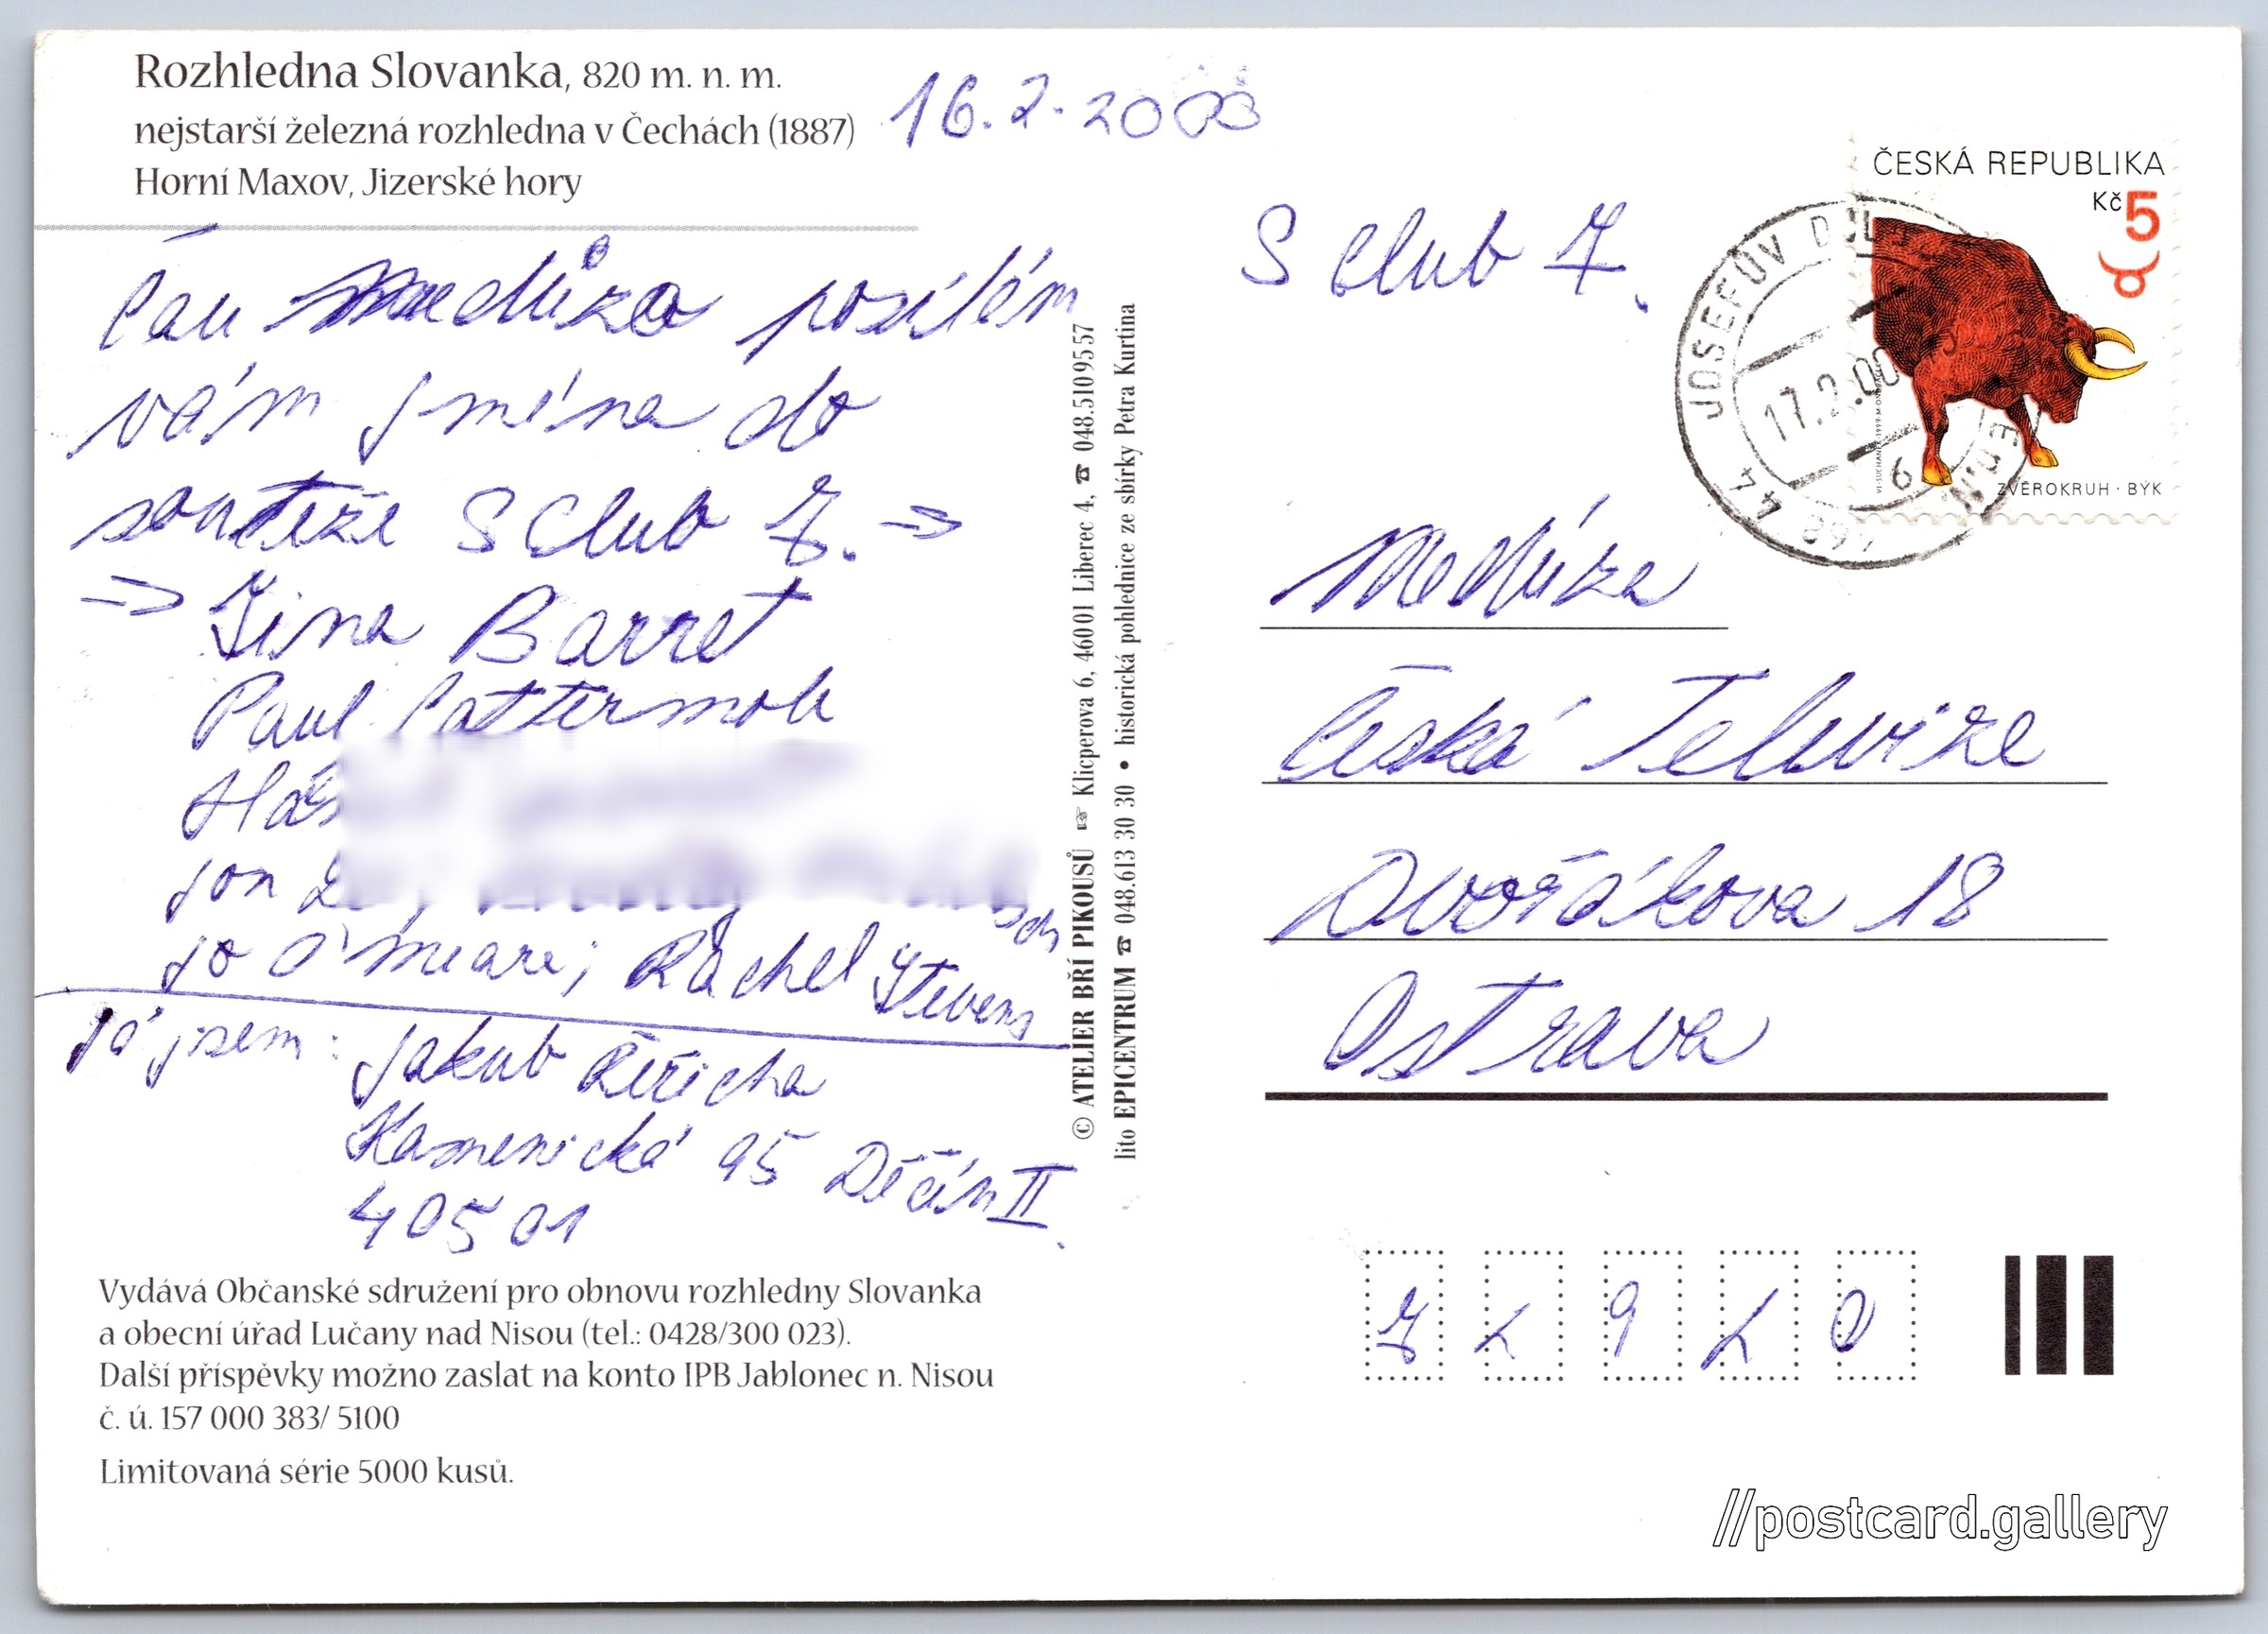 Rozhledna Slovanka, 820 m. n. m.
nejstarší železná rozhledna v Čechách (1887)
Horní Maxov, Jizerské hory
16. 2. 2000
Čau medůzo posílám
vám jména do
soutěže S Club 7. =>
=> Tina Barret
Paul Cattermole
Há
jon
jo O'meare; Rachel Stevens
Já jsem: Jakub Řeřicha
Kamenická 95 Děčín II.
405 01
Vydává Občanské sdružení pro obnovu rozhledny Slovanka
a obecní úřad Lučany nad Nisou (tel.: 0428/300 023).
Další příspěvky možno zaslat na konto IPB Jablonec n. Nisou
č. ú. 157 000 383/ 5100
Limitovaná série 5000 kusů.
© ATELIER BŘÍ PIKOUSŮ ☞ Klicperova 6, 46001 Liberec 4, ☎ 048.5109557
lito EPICENTRUM ☎ 048.613 30 30 • historická pohlednice ze sbírky Petra Kurtina
S Club 7.
ČESKÁ REPUBLIKA
Kč 5
ZVĚROKRUH · BÝK
JOSEFŮV DŮL
17.2.00
468 44
6
Medúza
Česká Televize
Dvořákova 18
Ostrava
7 2 9 2 0
//postcard.gallery